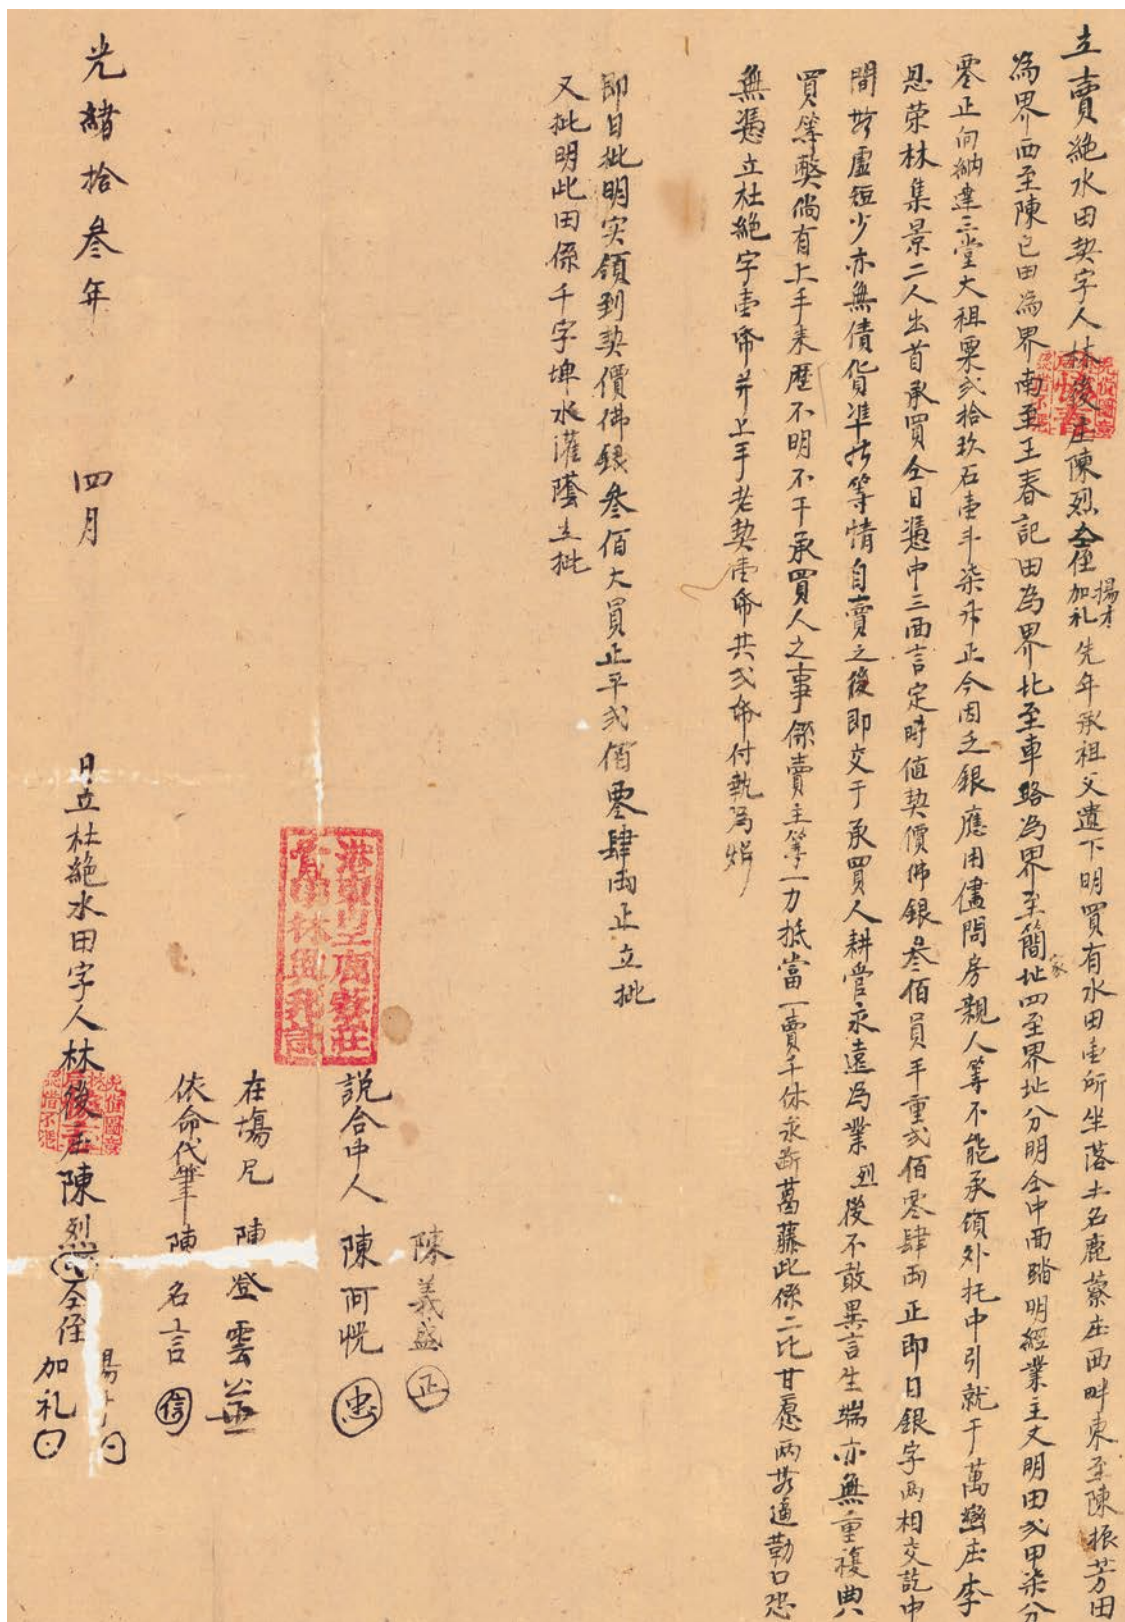 立賣絕水田契字人林後庄陳烈仝侄揚才加礼先年承祖父遺下明買有水田壹所坐落土名鹿藔庄西畔東至陳振芳田
為界西至陳已田為界南至王春記田為界北至車路為界至簡家址四至界址分明仝中面踏明經業主丈明田弍甲柒分
零正向納達三堂大租粟弍拾玖石壹斗柒升正今因乏銀應用儘問房親人等不能承領外托中引就于萬巒庄李
恩荣林集景二人出首承買仝日憑中三面言定時值契價佛銀叁佰員平重弍佰零肆両正即日銀字両相交訖中
間並虛短少亦無債貨凖折等情自賣之後即交于承買人耕管永遠為業烈後不敢異言生端亦無重複典
買等獘倘有上手来歷不明不干承買人之事係賣主等一力抵當一賣千休永斷葛藤此係二比甘愿両並逼勒口恐
無憑立杜絕字壹帋并上手老契壹帋共弍帋付執為炤
即日批明实領到契價佛銀叁佰大員正平弍佰零肆両正立批
又批明此田係千字埤水灌蔭立批
陳義盛正
說合中人陳阿恍忠
在場兄陳登雲
依命代筆陳名言信
光緒拾叁年四月日立杜絕水田字人林後庄陳烈仝侄揚才加礼